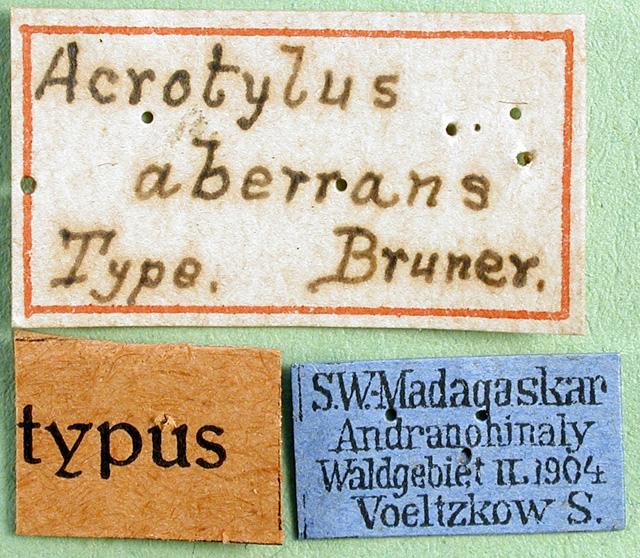 Acrotylus
aberrans
Type. Bruner.
typus
S.W-Madagaskar
Andranohinaly
Waldgebiet II.1904
Voeltzkow S.